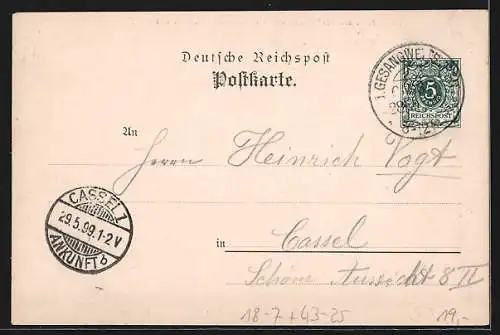 Deutsche Reichspost
Postkarte.
5
REICHSPOST
An
Herrn Heinrich Vogt
CASSEL 1
29.5.99.1-2 V
ANKUNFT b
in
Cassel
Schöne Aussicht 8 II
18-7+43-25
19,-